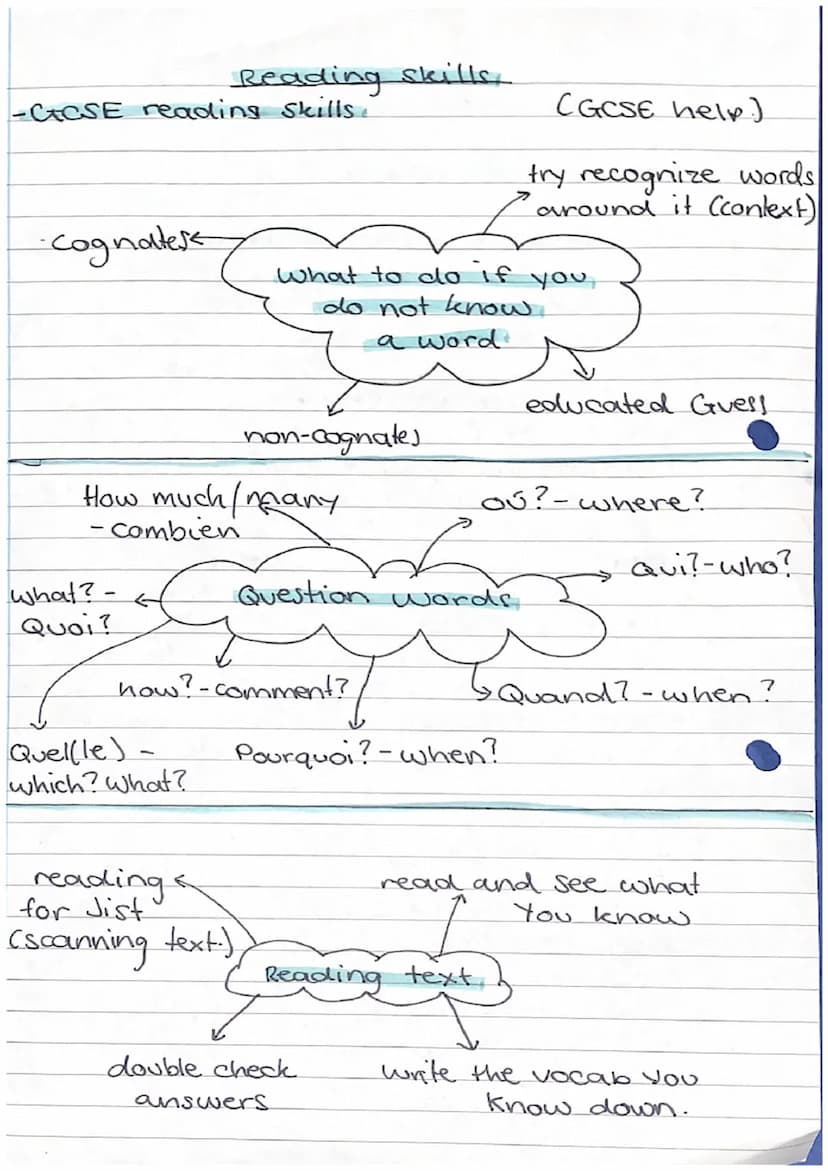 Reading skills.
-GCSE reading skills.
(GCSE help)
try recognize words
around it (context)
·cognates
What to do if you
do not know
a word
educated Guess
non-cognates
How much/many
-combien
où?-where?
Qui?-who?
what?-
Quoi?
Question words.
how?-comment?
Quand?-when?
Quel(le)-
which? What?
Pourquoi?-when?
reading
for Jist
(scanning text.)
read and see what
You know
Reading text.
double check
answers
write the vocab you
know down.